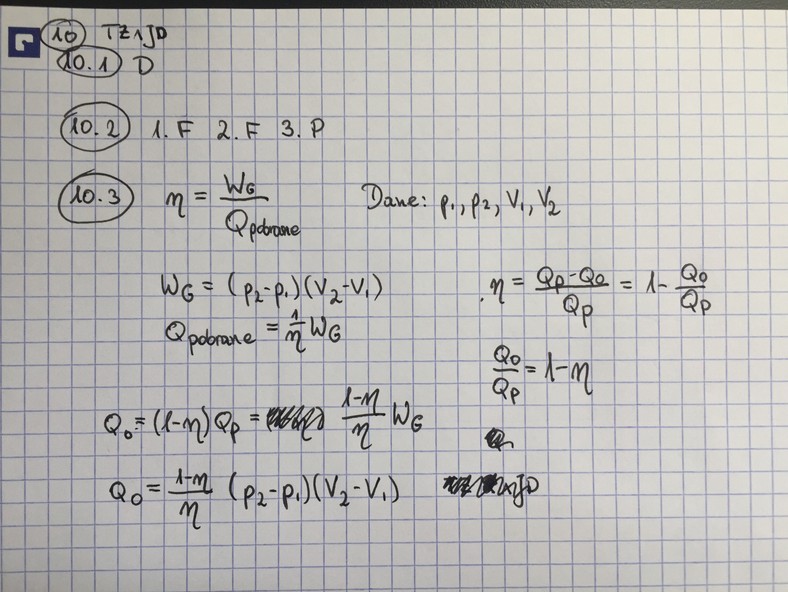 10 TZ1JD
10.1 D
10.2 1. F 2. F 3. P
10.3 η = W_G / Q_pobrane Dane: p₁, p₂, V₁, V₂
W_G = (p₂-p₁)(V₂-V₁)
Q_pobrane = 1/η W_G
η = (Q_p-Q_o)/Q_p = 1 - Q_o/Q_p
Q_o/Q_p = 1-η
Q_o = (1-η) Q_p = (1-η)/η W_G
Q_o = (1-η)/η (p₂-p₁)(V₂-V₁)